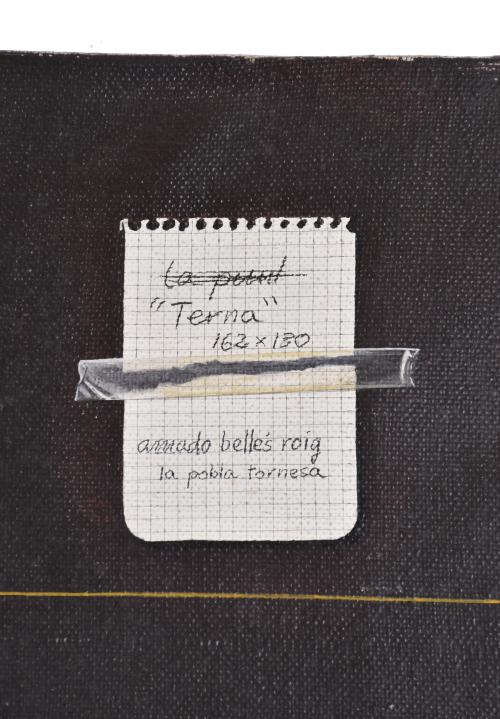 la
"Terna"
162 x 130
amado belle's roig
la pobla tornesa